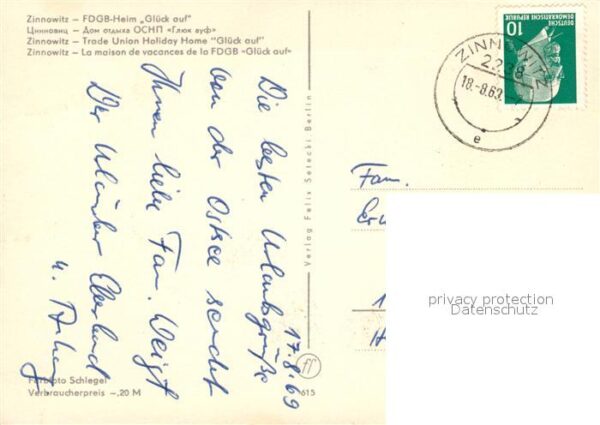 Zinnowitz — FDGB-Heim „Glück auf"
Цинновиц — Дом отдыха ОСНП «Глюк ауф»
Zinnowitz — Trade Union Holiday Home "Glück auf"
Zinnowitz — La maison de vacances de la FDGB «Glück auf»
17.8.69
Die besten Urlaubsgrüße
von der Ostsee sendet
Ihnen liebe Fam. Weigt
Der Urlauber Eberhard
u.
Verlag Felix Setecki Berlin
Farbfoto Schlegel
Verbraucherpreis —,20 M
615
ff
10
DEUTSCHE DEMOKRATISCHE REPUBLIK
ZINNOWITZ
2238
18.-8.69
e
Fam.
1
H
privacy protection
Datenschutz